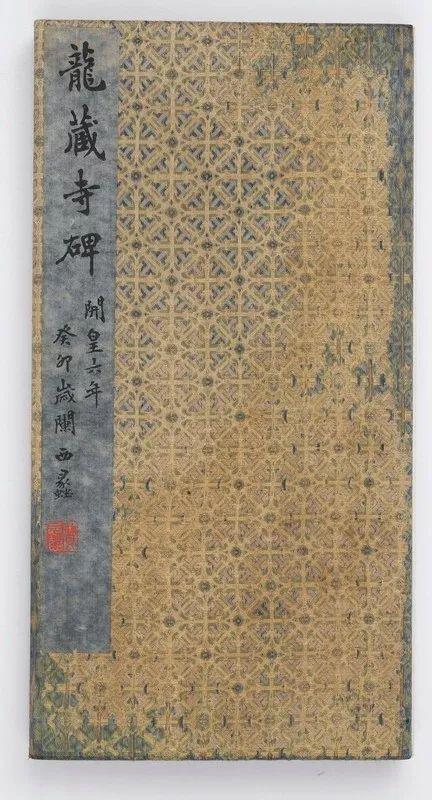 龍藏寺碑
開皇六年
癸卯歲闌西蠡